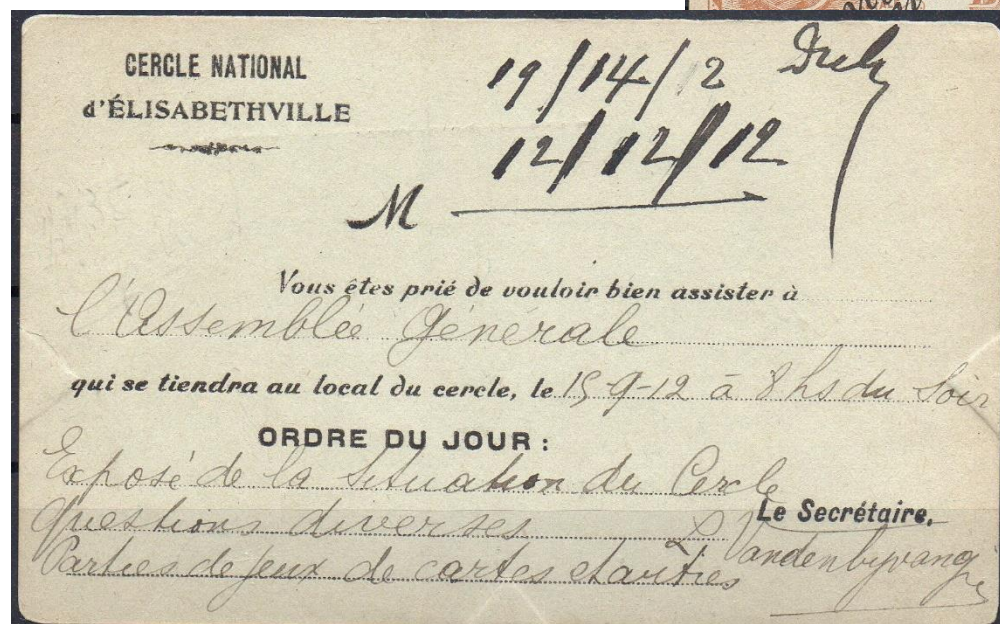 CERCLE NATIONAL
d'ÉLISABETHVILLE
19/14/2
12/12/12
M
Vous êtes prié de vouloir bien assister à
l'Assemblée Générale
qui se tiendra au local du cercle, le 15-9-12 à 8 hs du Soir
ORDRE DU JOUR :
Exposé de la Situation du Cercle
Le Secrétaire,
questions diverses
Parties de jeux de cartes et autres